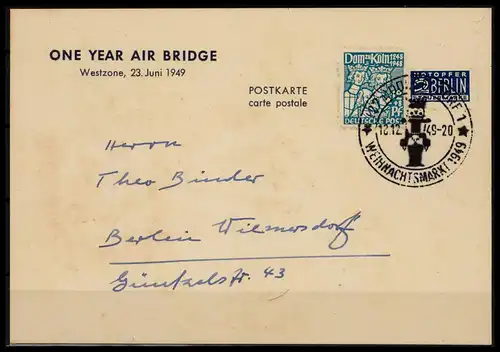 ONE YEAR AIR BRIDGE
Westzone, 23. Juni 1949
POSTKARTE
carte postale
Dom zu Köln 1248
1948
DEUTSCHE POST
NOTOPFER
2 BERLIN
18.12 49-20
WEIHNACHTSMARKT 1949
Herrn
Theo Binder
Berlin Wilmersdorf
Güntzelstr. 43